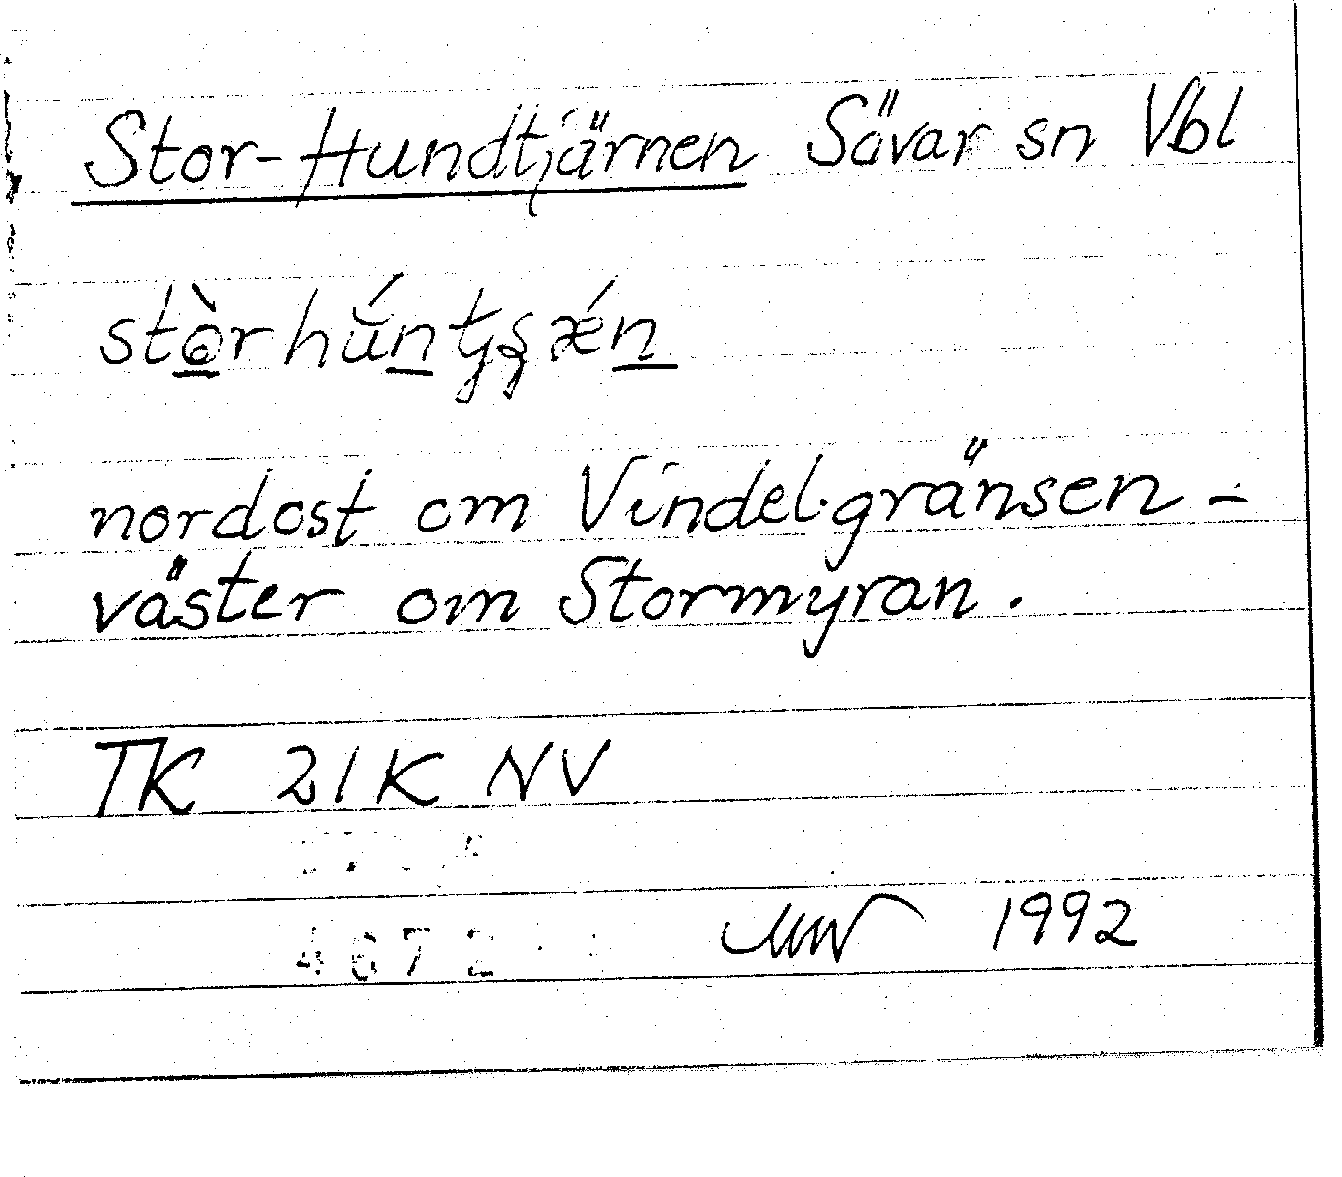 Stor-Hundtjärnen Sävar sn Vbl
nordost om Vindelgränsen -
väster om Stormyran.
TK 21K NV
4672
1992